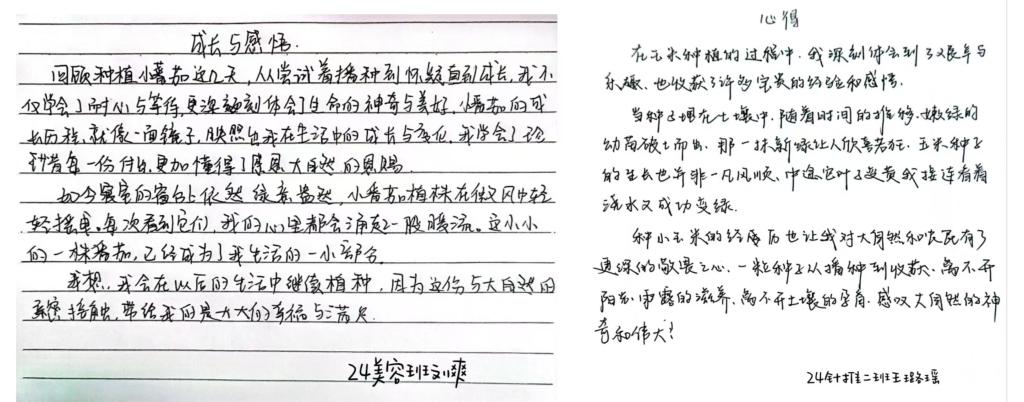 成长与感悟.
回顾种植小番茄这几天,从尝试着播种到怀疑直到成长,我不
仅学会了耐心与等待,更深刻体会了生命的神奇与美好。小番茄的成
长历程,就像一面镜子,映照出我在生活中的成长与变化。我学会了珍
惜着每一份付出,更加懂得了感恩大自然的恩赐。
如今寝室的窗台上依然绿意盎然,小番茄植株在微风中轻
轻摇曳。每次看到它们,我的心里都会涌起一股暖流。这小小
的一株番茄,已经成为了我生活的一小部分。
我想,我会在以后的生活中继续植种,因为这份与大自然的
亲密接触,带给我的是大大的幸福与满足。
24美容班刘爽
心得
在玉米种植的过程中,我深刻体会到了艰辛与
乐趣,也收获了许多宝贵的经验和感悟。
当种子埋在土壤中,随着时间的推移,嫩绿的
幼苗破土而出,那一抹新绿让人欣喜若狂。玉米种子
的生长也并非一凡风顺,中途它叶子变黄我接连着
浇水又成功变绿.
种小玉米的经历也让我对大自然和农民有了
更深的敬畏之心.一粒种子从播种到收获,离不开
阳光雨露的滋养,离不开土壤的孕育.感叹大自然的神
奇和伟大!
24针推二班王璐瑶